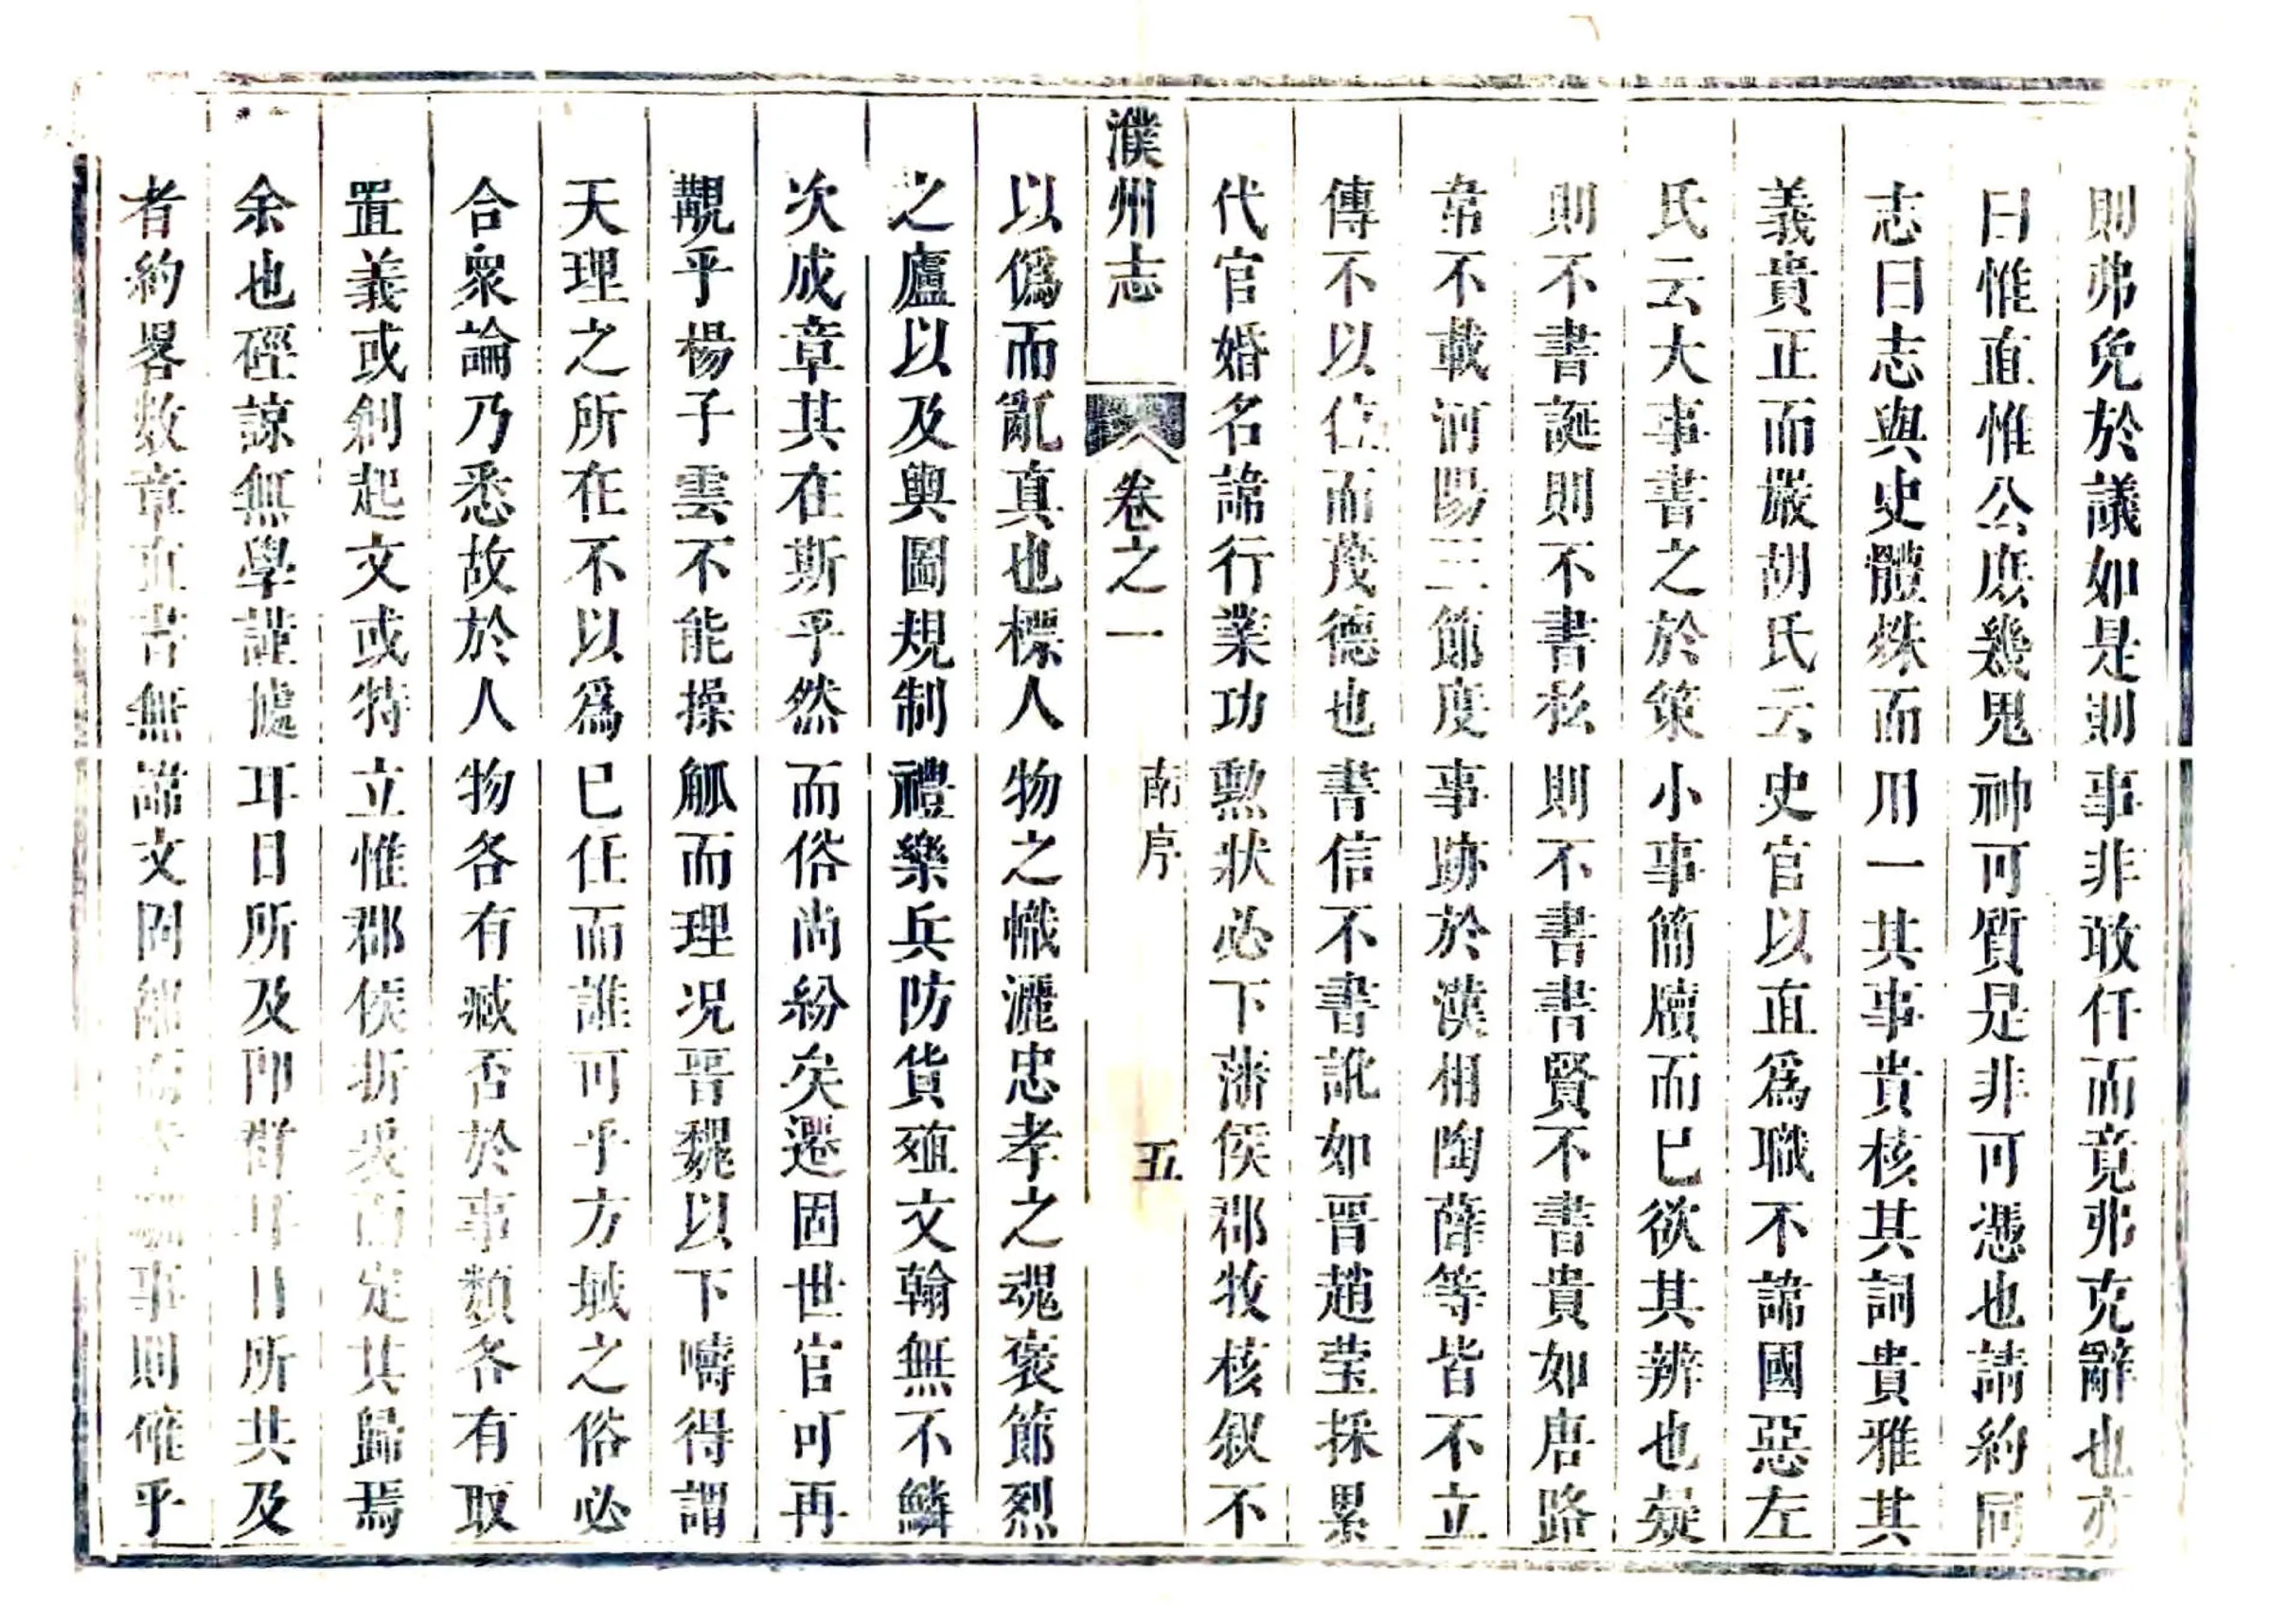 則弗免於議如是則事非敢任而竟弗克辭也亦
曰惟直惟公庶幾鬼神可質是非可憑也請約同
志曰志與史體殊而用一其事貴核其詞貴雅其
義貴正而嚴胡氏云史官以直爲職不諦國惡左
氏云大事書之於策小事簡牘而已欲其辨也疑
則不書誕則不書私則不書書賢不書貴如唐路
常不載河陽三節度事跡於漢相陶薛等皆不立
傳不以位而茂德也書信不書訛如晋趙莹採累
代官婚名諦行業功勲狀必下藩侯郡牧核叙不
濮州志
卷之一
南序
五
以僞而亂真也標人物之幟灑忠孝之魂褒節烈
之廬以及輿圖規制禮樂兵防貨殖文翰無不鱗
次成章其在斯乎然而俗尚紛矣遷固世官可再
覯乎楊子雲不能操觚而理况晋魏以下嚋得謂
天理之所在不以爲已任而誰可乎方域之俗必
合衆論乃悉故於人物各有臧否於事類各有取
置義或創起文或特立惟郡侯折衷而定其歸焉
余也硜諒無學謹據耳目所及卽群耳目所共及
者約畧数章直書無諦文罔事則僱乎